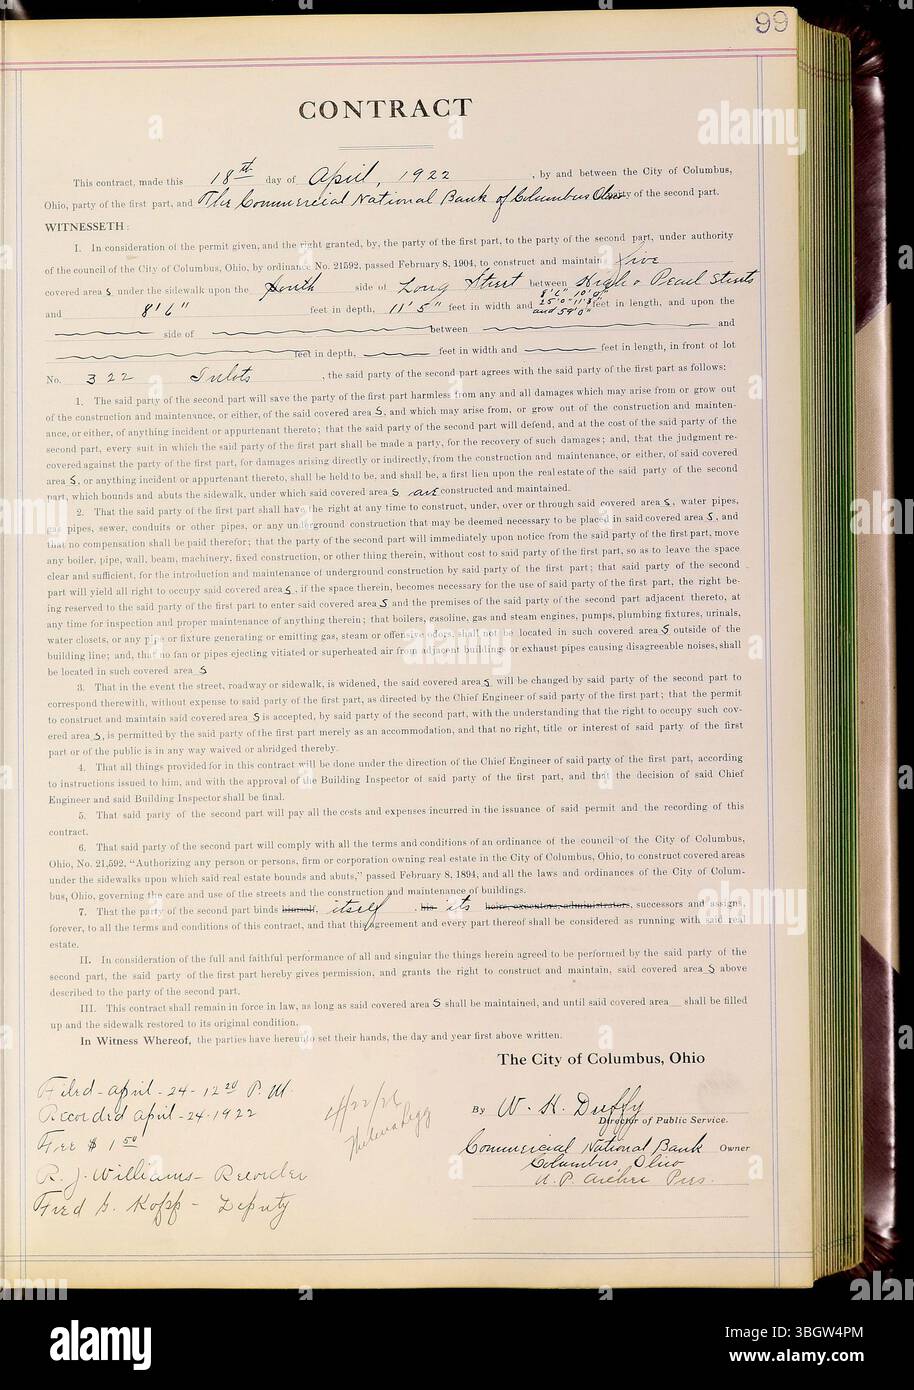 99
CONTRACT
This contract, made this 18th day of April, 1922, by and between the City of Columbus,
Ohio, party of the first part, and The Commercial National Bank of Columbus Ohio party of the second part.
WITNESSETH:
I. In consideration of the permit given, and the right granted, by, the party of the first part, to the party of the second part, under authority
of the council of the City of Columbus, Ohio, by ordinance No. 21592, passed February 8, 1904, to construct and maintain five
covered area s under the sidewalk upon the South side of Long Street between High & Pearl Streets
8'6" 10'0"
and 8'6" feet in depth, 11'5" feet in width and 25'0" 11'8" feet in length, and upon the
and 59'0"
side of between and
feet in depth, feet in width and feet in length, in front of lot
No. 322 Inlots, the said party of the second part agrees with the said party of the first part as follows:
1. The said party of the second part will save the party of the first part harmless from any and all damages which may arise from or grow out
of the construction and maintenance, or either, of the said covered area s, and which may arise from, or grow out of the construction and mainten-
ance, or either, of anything incident or appurtenant thereto; that the said party of the second part will defend, and at the cost of the said party of the
second part, every suit in which the said party of the first part shall be made a party, for the recovery of such damages; and, that the judgment re-
covered against the party of the first part, for damages arising directly or indirectly, from the construction and maintenance, or either, of said covered
area s, or anything incident or appurtenant thereto, shall be held to be, and shall be, a first lien upon the real estate of the said party of the second
part, which bounds and abuts the sidewalk, under which said covered area s are constructed and maintained.
2. That the said party of the first part shall have the right at any time to construct, under, over or through said covered area s, water pipes,
gas pipes, sewer, conduits or other pipes, or any underground construction that may be deemed necessary to be placed in said covered area s, and
that no compensation shall be paid therefor; that the party of the second part will immediately upon notice from the said party of the first part, move
any boiler, pipe, wall, beam, machinery, fixed construction, or other thing therein, without cost to said party of the first part, so as to leave the space
clear and sufficient, for the introduction and maintenance of underground construction by said party of the first part; that said party of the second
part will yield all right to occupy said covered area s, if the space therein, becomes necessary for the use of said party of the first part, the right be-
ing reserved to the said party of the first part to enter said covered area s and the premises of the said party of the second part adjacent thereto, at
any time for inspection and proper maintenance of anything therein; that boilers, gasoline, gas and steam engines, pumps, plumbing fixtures, urinals,
water closets, or any pipe or fixture generating or emitting gas, steam or offensive odors, shall not be located in such covered area s outside of the
building line; and, that no fan or pipes ejecting vitiated or superheated air from adjacent buildings or exhaust pipes causing disagreeable noises, shall
be located in such covered area s
3. That in the event the street, roadway or sidewalk, is widened, the said covered area s will be changed by said party of the second part to
correspond therewith, without expense to said party of the first part, as directed by the Chief Engineer of said party of the first part; that the permit
to construct and maintain said covered area s is accepted, by said party of the second part, with the understanding that the right to occupy such cov-
ered area s, is permitted by the said party of the first part merely as an accommodation, and that no right, title or interest of said party of the first
part or of the public is in any way waived or abridged thereby.
4. That all things provided for in this contract will be done under the direction of the Chief Engineer of said party of the first part, according
to instructions issued to him, and with the approval of the Building Inspector of said party of the first part, and that the decision of said Chief
Engineer and said Building Inspector shall be final.
5. That said party of the second part will pay all the costs and expenses incurred in the issuance of said permit and the recording of this
contract.
6. That said party of the second part will comply with all the terms and conditions of an ordinance of the council of the City of Columbus,
Ohio, No. 21,592, "Authorizing any person or persons, firm or corporation owning real estate in the City of Columbus, Ohio, to construct covered areas
under the sidewalks upon which said real estate bounds and abuts," passed February 8, 1894, and all the laws and ordinances of the City of Colum-
bus, Ohio, governing the care and use of the streets and the construction and maintenance of buildings.
7. That the party of the second part binds himself, itself his its heirs, executors, administrators, successors and assigns,
forever, to all the terms and conditions of this contract, and that this agreement and every part thereof shall be considered as running with said real
estate.
II. In consideration of the full and faithful performance of all and singular the things herein agreed to be performed by the said party of the
second part, the said party of the first part hereby gives permission, and grants the right to construct and maintain, said covered area s above
described to the party of the second part.
III. This contract shall remain in force in law, as long as said covered area s shall be maintained, and until said covered area shall be filled
up and the sidewalk restored to its original condition.
In Witness Whereof, the parties have hereunto set their hands, the day and year first above written.
The City of Columbus, Ohio
By W. H. Duffy
Director of Public Service.
Commercial National Bank Owner
Columbus, Ohio
Pres.
Filed - April - 24 - 12 20 P. M
Recorded April - 24 - 1922
Fee $ 1 50
R. J. Williams - Recorder
Fred G. Kopp - Deputy
4/22/26
alamy
Image ID: 3BGW4PM
www.alamy.com